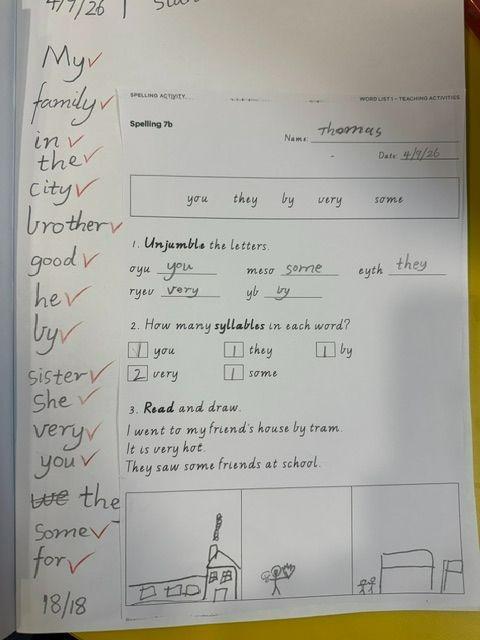 4/9/26
My
family
in
the
city
brother
good
he
by
sister
she
very
you
we the
some
for
18/18
SPELLING ACTIVITY
WORD LIST 1 – TEACHING ACTIVITIES
Spelling 7b
Name: Thomas
Date: 4/9/26
you they by very some
1. Unjumble the letters.
oyu you meso some eyth they
ryev very yb by
2. How many syllables in each word?
1 you 1 they 1 by
2 very 1 some
3. Read and draw.
I went to my friend's house by tram.
It is very hot.
They saw some friends at school.